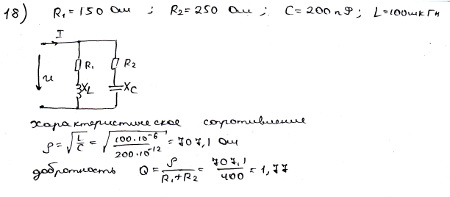 18) R₁=150 Ом ; R₂=250 Ом ; C=200 пФ ; L=100мкГн
I
R₁ R₂
u XL XC
характеристическое сопротивление
ρ=√(L/C) = √(100·10⁻⁶/200·10⁻¹²) = 707,1 Ом
добротность Q = ρ/(R₁+R₂) = 707,1/400 = 1,77